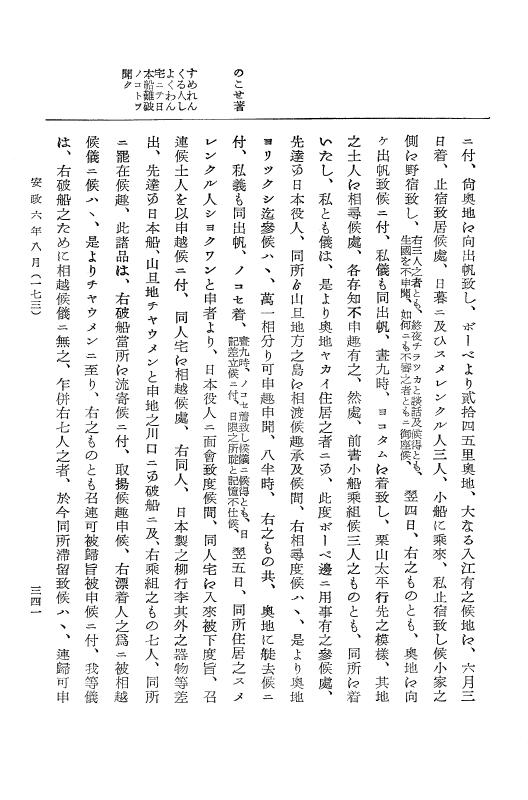 ニ付、尙奥地に向出帆致し、ボーベより貳拾四五里奥地、大なる入江有之候地に、六月三
日着、止宿致居候處、日暮ニ及ひスメレンクル人三人、小船に乘來、私止宿致し候小家之
側に野宿致し、右三人之者とも、終夜チラツカと談話及候得とも、
生國を不申聞、如何ニも不審之者ともニ御座候、翌四日、右之ものとも、奥地に向
ケ出帆致候ニ付、私儀も同出帆、晝九時、ヨコタムに着致し、栗山太平行先之模樣、其地
之土人に相尋候處、各存知不申趣有之、然處、前書小船乘組候三人之ものとも、同所に着
いたし、私とも儀は、是より奥地ヤカイ住居之者ニ而、此度ボーベ邊ニ用事有之參候處、
先達而日本役人、同所ゟ山旦地方之島に相渡候趣承及候間、右相尋度候ハヽ、是より奥地
ヨリツクシ迄參候ハヽ、萬一相分り可申趣申聞、八半時、右之もの共、奥地に徙去候ニ
付、私義も同出帆、ノコセ着、晝九時、ノコセ着致し候儀ニ候得とも、日
記差立候ニ付、日限之所聢と記憶不仕候、翌五日、同所住居之スメ
レンクル人シヨクワンと申者より、日本役人ニ面會致度候間、同人宅に入來被下度旨、召
連候土人を以申越候ニ付、同人宅に相越候處、右同人、日本製之柳行李其外之器物等差
出、先達而日本船、山旦地チヤウメンと申地之川口ニ而破船ニ及、右乘組之もの七人、同所
ニ罷在候趣、此諸品は、右破船當所に流寄候ニ付、取揚候趣申候、右漂着人之爲ニ被相越
候儀ニ候ハヽ、是よりチヤウメンニ至り、右之ものとも召連可被歸旨被申候ニ付、我等儀
は、右破船之ために相越候儀ニ無之、乍併右七人之者、於今同所滯留致候ハヽ、連歸可申
のこせ著
すめれん
くる人し
よくわん
宅ニテ日
本船難破
ノコトヲ
聞ク
安政六年八月（一七三）
三四一